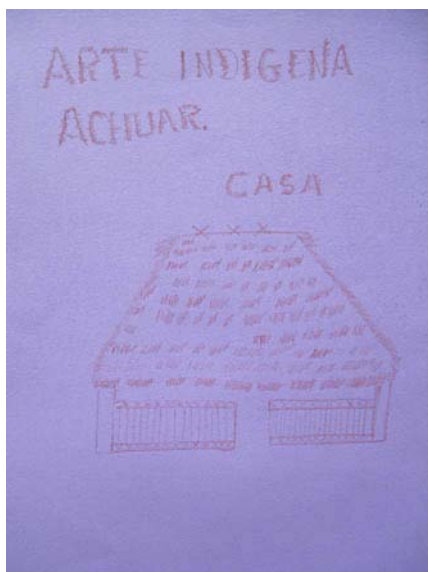 ARTE INDIGENA
ACHUAR.
CASA